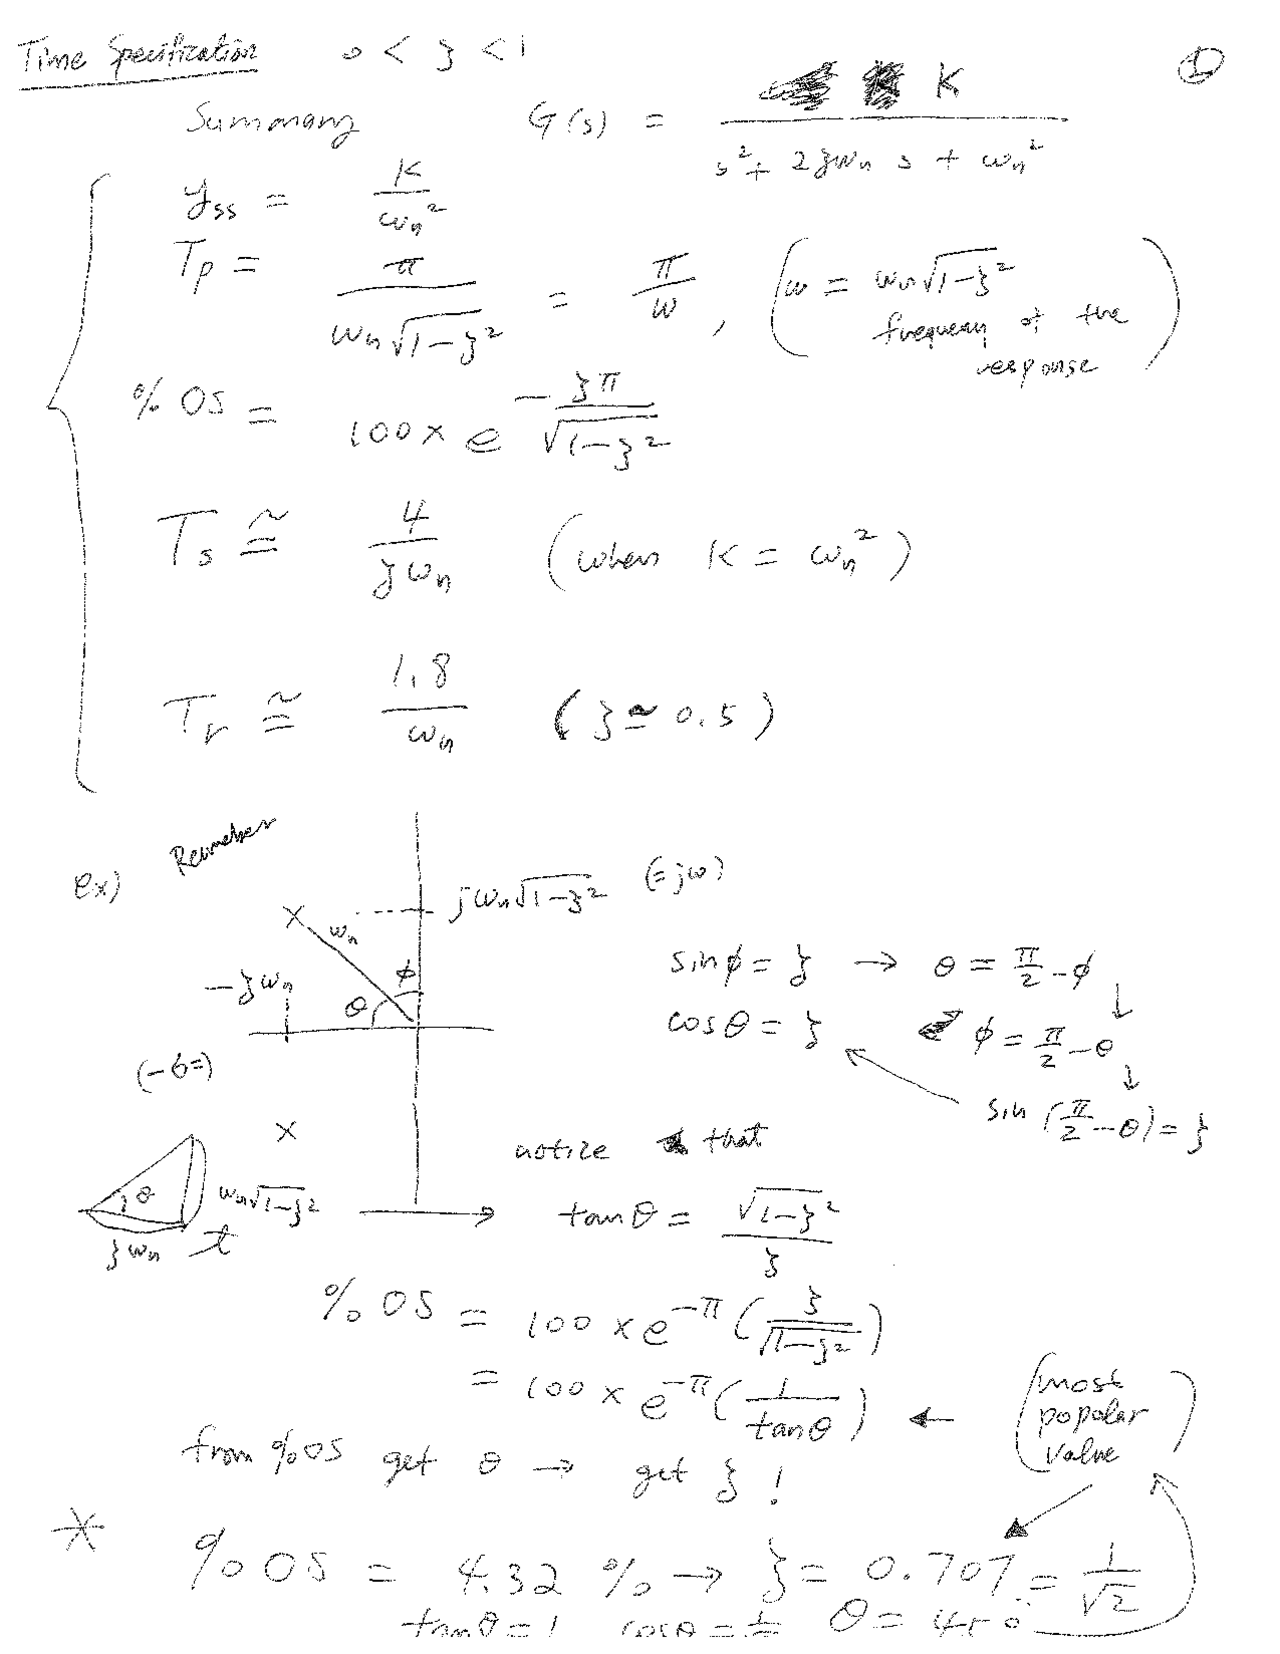 Time Specification 0 < ζ < 1 ①
Summary G(s) = K / (s² + 2ζωₙ s + ωₙ²)
yss = K / ωₙ²
Tp = π / (ωₙ√(1-ζ²)) = π / ω , (ω = ωₙ√(1-ζ²)
frequency of the
response)
% OS = 100 × e^(-ζπ / √(1-ζ²))
Ts ≅ 4 / (ζωₙ) (when K = ωₙ²)
Tr ≅ 1.8 / ωₙ (ζ ≃ 0.5)
Remember
ex)
jωₙ√(1-ζ²) (=jω)
× ωₙ
-ζωₙ θ φ
(-σ=)
sinφ = ζ → θ = π/2 - φ
cosθ = ζ φ = π/2 - θ
sin (π/2 - θ) = ζ
×
notice that
θ ωₙ√(1-ζ²) → tanθ = √(1-ζ²) / ζ
ζωₙ
% OS = 100 × e^-π (ζ / √(1-ζ²))
= 100 × e^-π (1 / tanθ) ← (most
popolar
value)
from %OS get θ → get ζ !
* % OS = 4.32 % → ζ = 0.707 = 1/√2
tanθ = 1 cosθ = θ = 45°